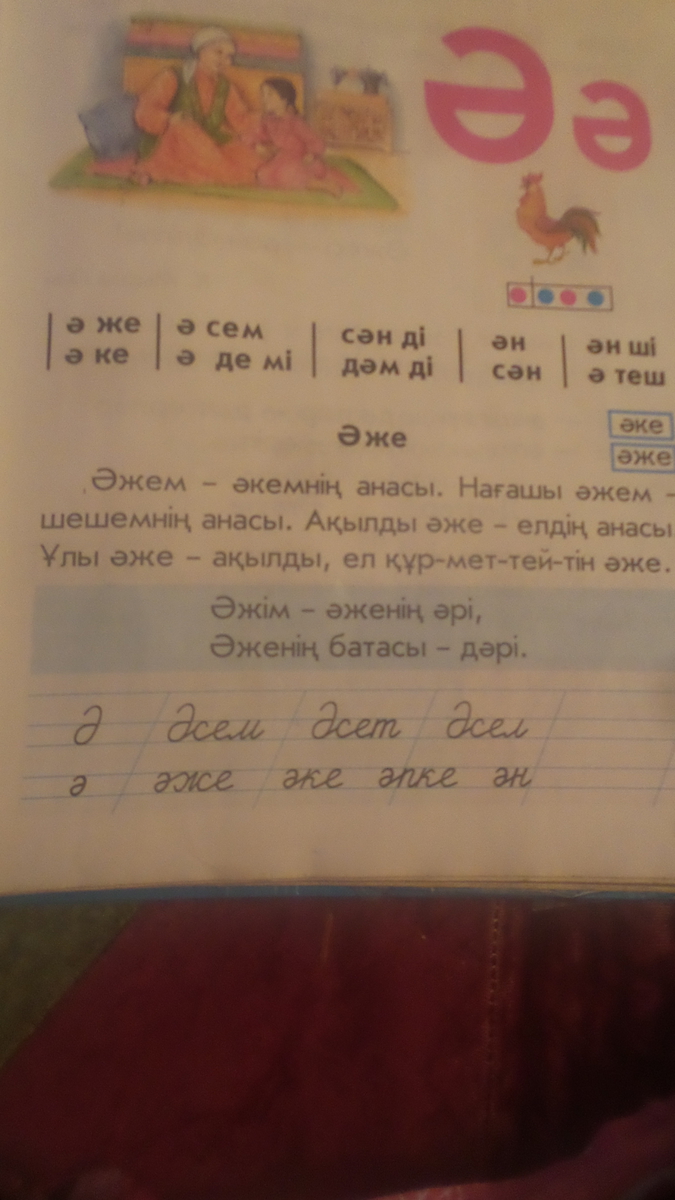 Ә ә
ә же | ә сем | сән ді | ән | ән ші
ә ке | ә де мі | дәм ді | сән | ә теш
Әже
әке
әже
Әжем – әкемнің анасы. Нағашы әжем –
шешемнің анасы. Ақылды әже – елдің анасы
Ұлы әже – ақылды, ел құр-мет-тей-тін әже.
Әжім – әженің әрі,
Әженің батасы – дәрі.
Ә Әсем Әсет Әсел
ә әже әке әпке ән